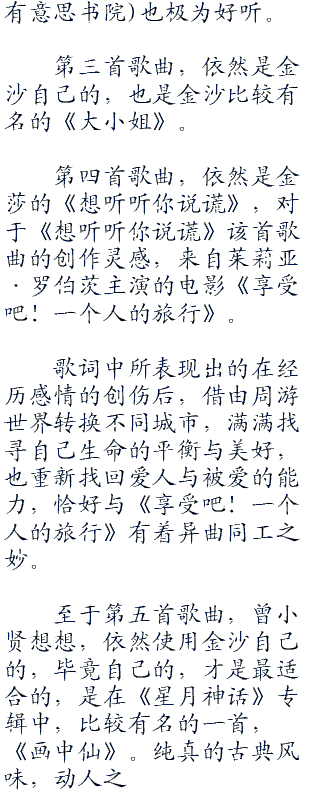 有意思书院)也极为好听。
第三首歌曲，依然是金
沙自己的，也是金沙比较有
名的《大小姐》。
第四首歌曲，依然是金
莎的《想听听你说谎》，对
于《想听听你说谎》该首歌
曲的创作灵感，来自茱莉亚
·罗伯茨主演的电影《享受
吧！一个人的旅行》。
歌词中所表现出的在经
历感情的创伤后，借由周游
世界转换不同城市，满满找
寻自己生命的平衡与美好，
也重新找回爱人与被爱的能
力，恰好与《享受吧！一个
人的旅行》有着异曲同工之
妙。
至于第五首歌曲，曾小
贤想想，依然使用金沙自己
的，毕竟自己的，才是最适
合的，是在《星月神话》专
辑中，比较有名的一首，
《画中仙》。纯真的古典风
味，动人之